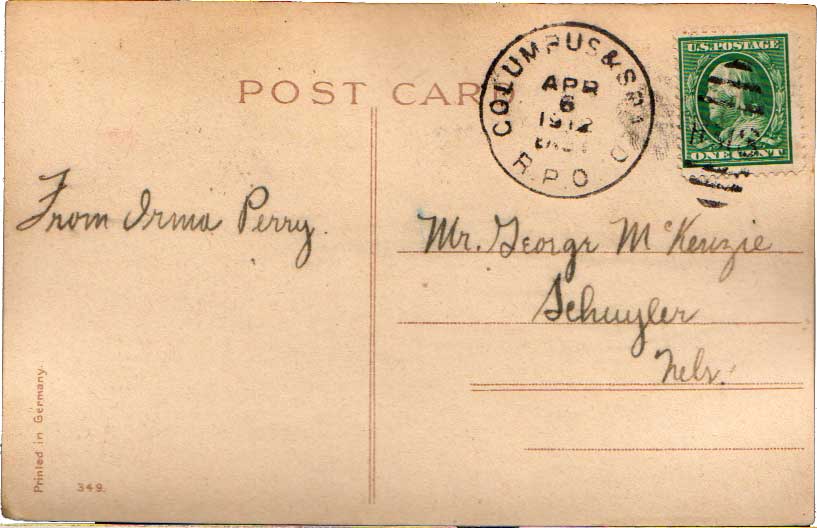 POST CARD
COLUMBUS & SPA
APR
6
1912
EAST
R.P.O.
U.S. POSTAGE
ONE CENT
From Irma Perry.
Mr. George McKenzie
Schuyler
Nebr.
Printed in Germany.
349.